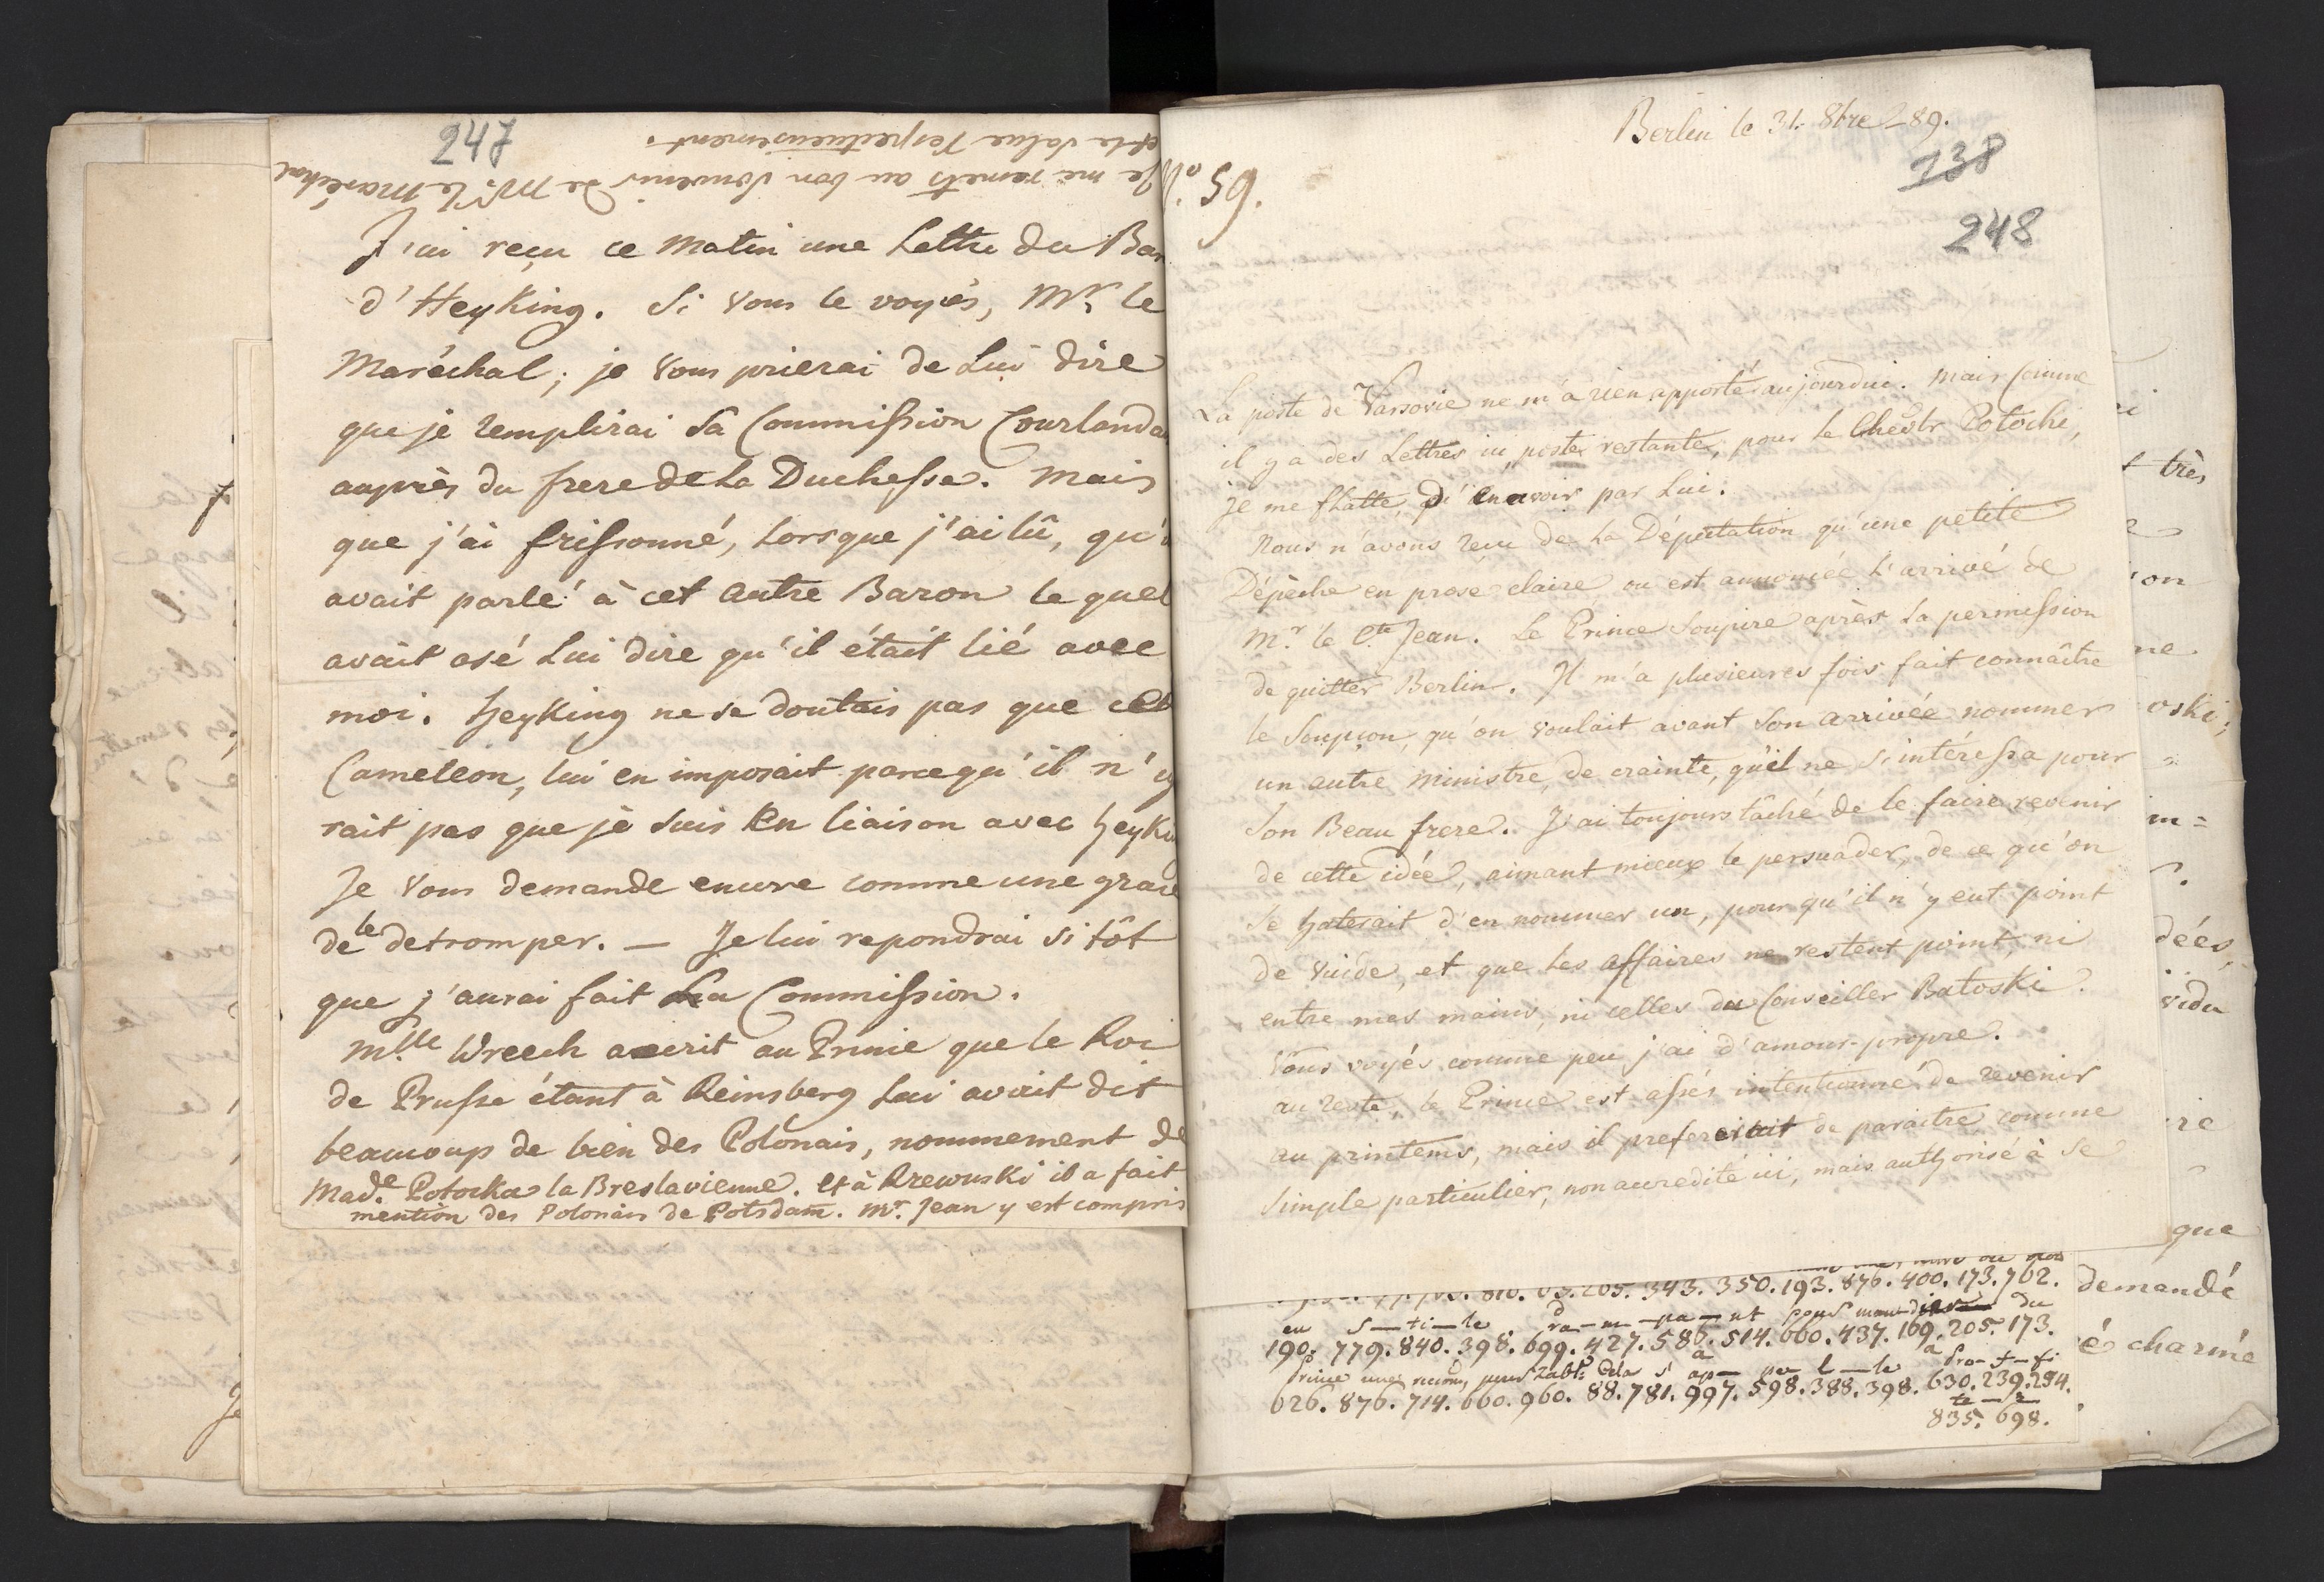 247
Je me remets au bon souvenir de Mr. le Maréchal
et le salue respectueusement.
J'ai reçu ce matin une Lettre du Bar
d'Heyking. Si vous le voyés, Mr. le
Maréchal; je vous prierai de Lui dire
que je remplirai sa Commission Courlanda
auprès du frere de la Duchesse. Mais
que j'ai frissonné, lorsque j'ai lû, qu'
avait parlé à cet autre Baron le quel
avait osé Lui dire qu'il était lié avec
moi. Heyking ne se doutais pas que cet
Cameleon, lui en imposait parcequ'il n'ig
rait pas que je suis en liaison avec Heyki
Je vous demande encore comme une grace
de le detromper. — Je lui repondrai si tôt
que j'aurai fait sa Commission.
Mlle Wreech a ecrit au Prince que le Roi
de Prusse étant à Reinsberg Lui avait dit
beaucoup de bien des Polonais, nommement de
Made. Potocka la Breslavienne. et à Rzewuski il a fait
mention des Polonais de Potsdam. Mr. Jean y est compris
Berlin le 31. 8bre 89.
138
248
No. 59.
La poste de Varsovie ne m'a rien apporté aujourdui. Mais comme
il y a des Lettres ici poste restante, pour le Potocki,
je me flatte, d'en avoir par Lui.
Nous n'avons reçu de la Députation qu'une petite
Dépèche en prose claire ou est annoncée l'arrivé de
Mr. le Cte Jean. Le Prince soupire après la permission
de quitter Berlin. Il m'a plusieures fois fait connaître
le soupçon, qu'on voulait avant son arrivée nommer
un autre Ministre, de crainte, qu'il ne s'intéressa pour
son Beau frere. J'ai toujours tâché de le faire revenir
de cette idée, aimant mieux le persuader, de ce qu'on
se haterait d'en nommer un, pour qu'il n'y eut point
de vuide, et que les affaires ne restent point, ni
entre mes mains, ni celles du Conseiller Batoski.
Vous voyés comme peu j'ai d'amour-propre.
au reste, le Prince est assés intentionné de revenir
au printems, mais il prefererait de paraitre comme
simple particulier, non accredité ici, mais authorisé à se
205. 343. 350. 193. 876. 400. 173. 702.
en s — ti — le ra — m — pa — nt du
190. 779. 840. 398. 699. 427. 586. 514. 660. 437. 169. 205. 173.
Prince Cela s ap — pe l — le Pro — f — fi
626. 876. 714. 660. 960. 88. 781. 997. 598. 388. 398. 630. 239. 294.
te — r
835. 698.
très
on
ne
oski;
in=
dées,
vidu
re
que
demandé
é charmé